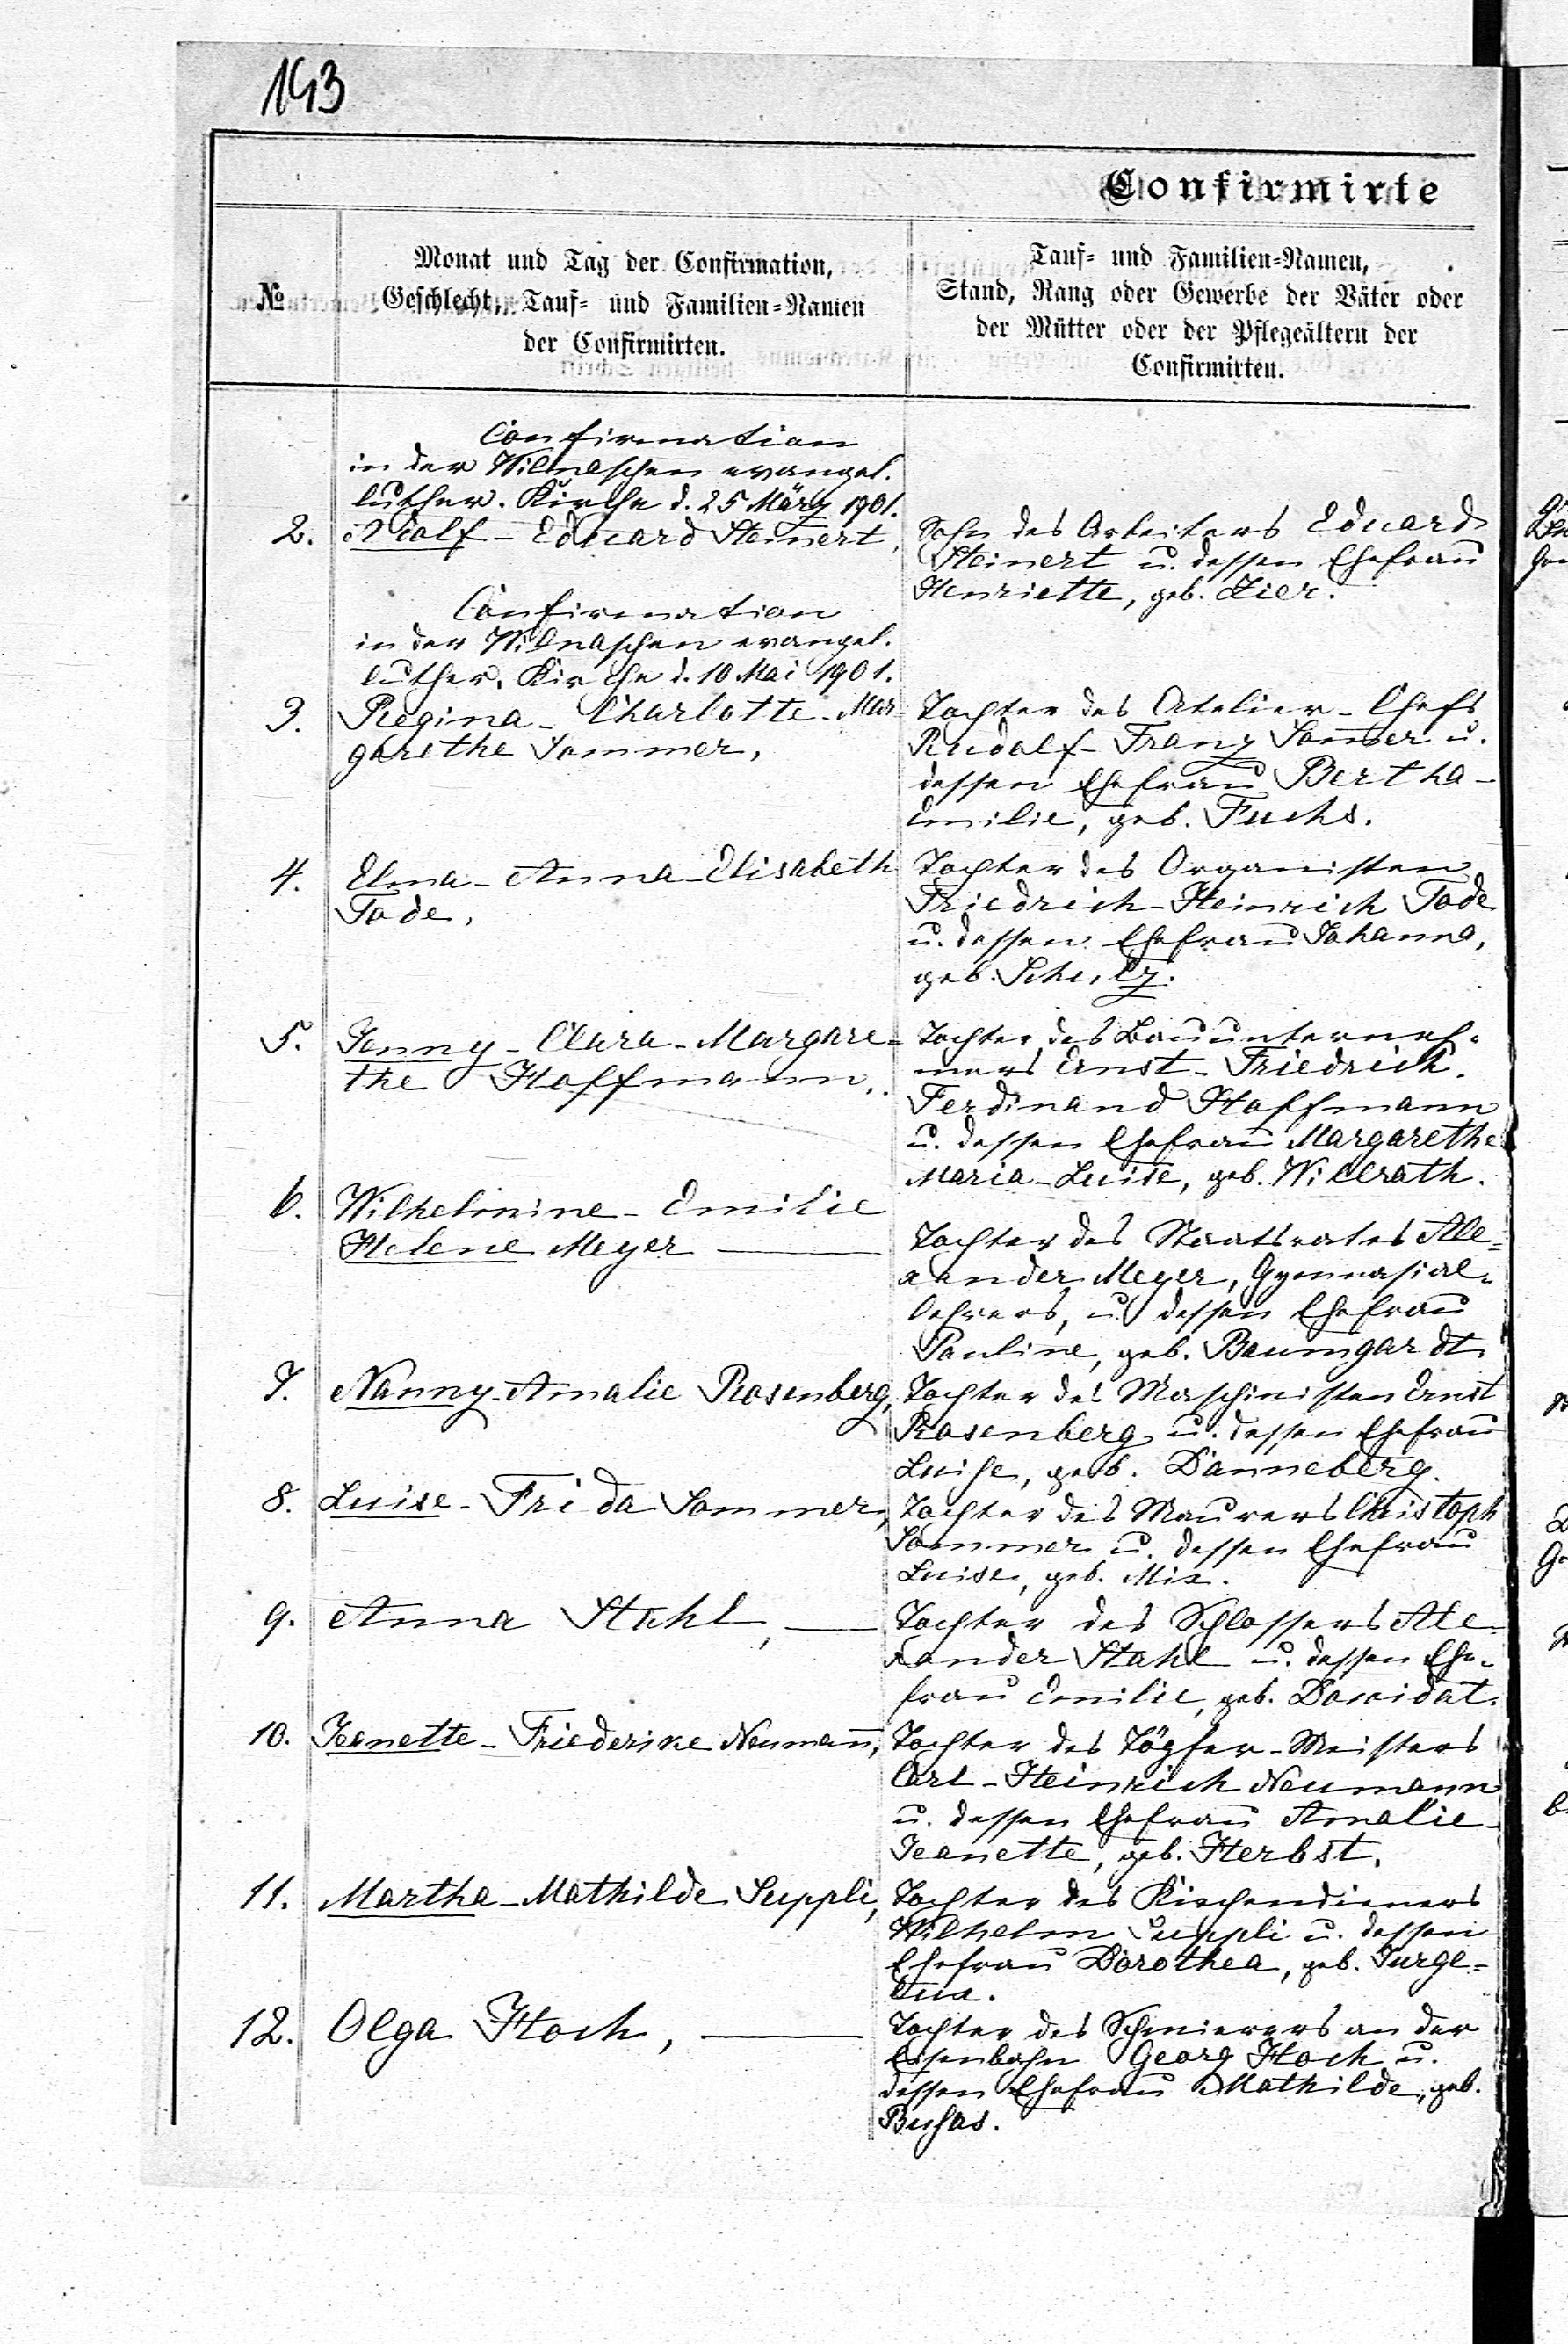 143
Confirmirte
№
Monat und Tag der Confirmation,
Geschlecht, Tauf- und Familien-Namen
der Confirmirten.
Tauf- und Familien-Namen,
Stand, Rang oder Gewerbe der Väter oder
der Mütter oder der Pflegeältern der
Confirmirten.
Confirmation
in der Wilnaschen evangel.
luther. Kirche d. 25 März 1901.
2. Adolf-Eduard Steinert,
Sohn des Arbeiters Eduard
Steinert u. dessen Ehefrau
Henriette, geb. Zier.
Confirmation
in der Wilnaschen evangel.
luther. Kirche d. 10 Mai 1901.
3. Regina-Charlotte-Mar-
garethe Sommer,
Tochter des Atelier-Chefs
Rudolf-Franz Sommer u.
dessen Ehefrau Bertha-
Emilie, geb. Fuchs.
4. Elma-Anna-Elisabeth
Tode,
Tochter des Organisten
Friedrich-Heinrich Tode
u. dessen Ehefrau Johanna,
geb. Schulz.
5. Jenny-Clara-Margare-
the Hoffmann,
Tochter des Bauunterneh-
mers Ernst-Friedrich-
Ferdinand Hoffmann
u. dessen Ehefrau Margarethe
Maria-Luise, geb. Willrath.
6. Wilhelmine-Emilie
Helene Meyer —
Tochter des Staatsrates Ale-
xander Meyer, Gymnasial-
lehrers, u. dessen Ehefrau
Pauline, geb. Baumgardt.
7. Nanny-Amalie Rosenberg,
Tochter des Maschinisten Ernst
Rosenberg u. dessen Ehefrau
Luise, geb. Danneberg.
8. Luise-Frida Sommer,
Tochter des Maurers Christoph
Sommer u. dessen Ehefrau
Luise, geb. Mix.
9. Anna Stahl, —
Tochter des Schlossers Ale-
xander Stahl u. dessen Ehe-
frau Emilie, geb.
10. Jeanette-Friederike Neumann,
Tochter des Töpfer-Meisters
Carl-Heinrich Neumann
u. dessen Ehefrau Amalie-
Jeanette, geb. Herbst.
11. Martha-Mathilde Suppli,
Tochter des Kirchendieners
Wilhelm Suppli u. dessen
Ehefrau Dorothea, geb. Jurge-
12. Olga Hoch, —
Tochter des Schmierers an der
Eisenbahn Georg Hoch u.
dessen Ehefrau Mathilde, geb.